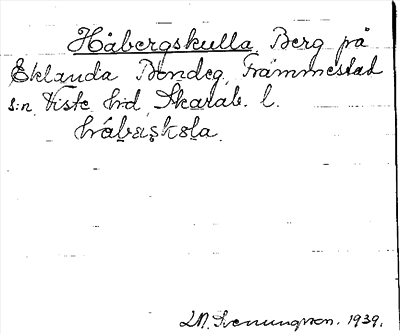 Håbergskulla, Berg på
Eklanda Bondeg, Främmestad
s:n, Viste hd, Skarab. l.
hábæṣkơla.
D.N. Svenungsson. 1939.